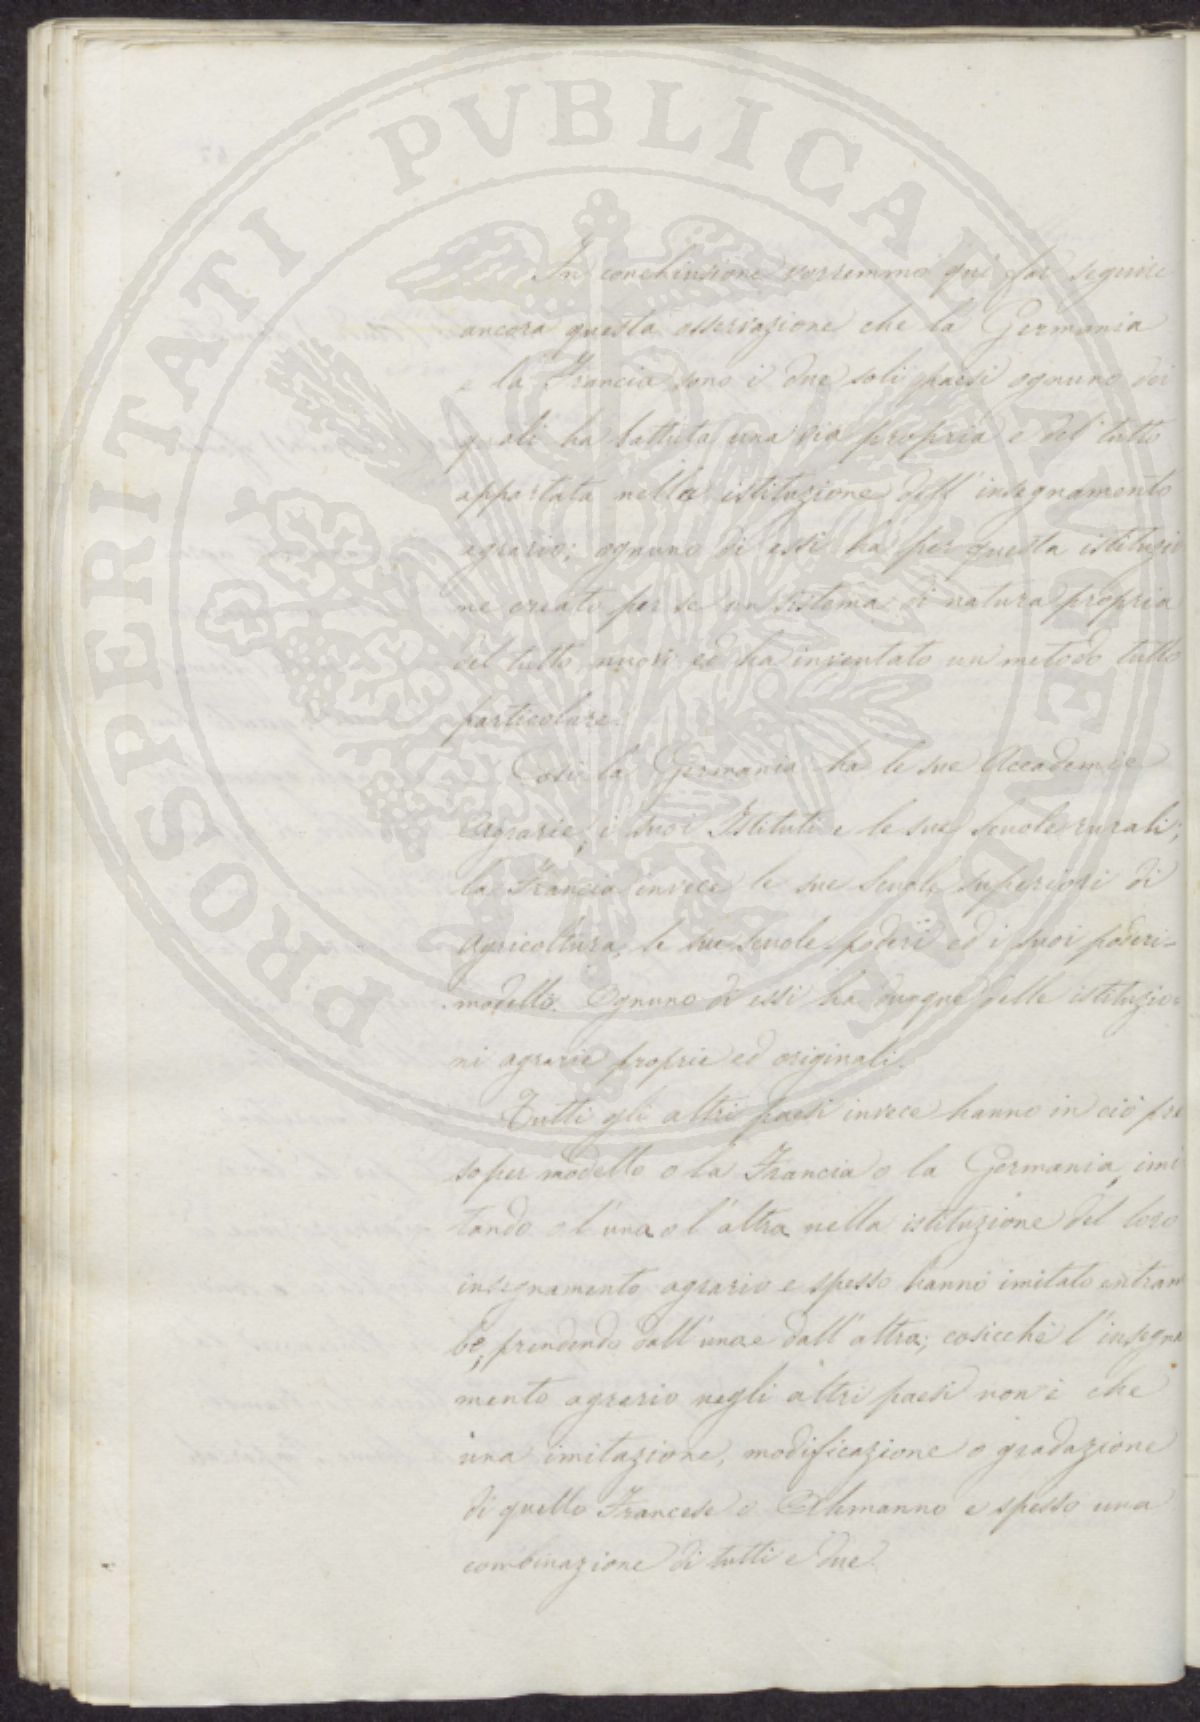 PROSPERITATI PUBLICAE AUGENDAE
In conchiusione vorremmo qui far seguire
ancora questa osservazione che la Germania
e la Francia sono i due soli paesi ognuno dei
quali ha battuta una via propria e del tutto
appartata nella istituzione dell' insegnamento
agrario; ognuno di essi ha per questa istituzio
ne creato per se un sistema di natura propria
del tutto nuovo ed ha inventato un metodo tutto
particolare.
Così la Germania ha le sue Accademie
Agrarie, i suoi Istituti e le sue scuole rurali;
la Francia invece le sue Scuole superiori di
Agricoltura, le sue scuole-poderi ed i suoi poderi-
modello. Ognuno di essi ha dunque delle istituzio-
ni agrarie proprie ed originali.
Tutti gli altri paesi invece hanno in ciò pre
so per modello o la Francia o la Germania, imi
tando o l'una o l'altra nella istituzione del loro
insegnamento agrario e spesso hanno imitato entram
be, prendendo dall'una e dall'altra; cosicchè l'insegna
mento agrario negli altri paesi non è che
una imitazione, modificazione o gradazione
di quello Francese o Alemanno e spesso una
combinazione di tutti e due.